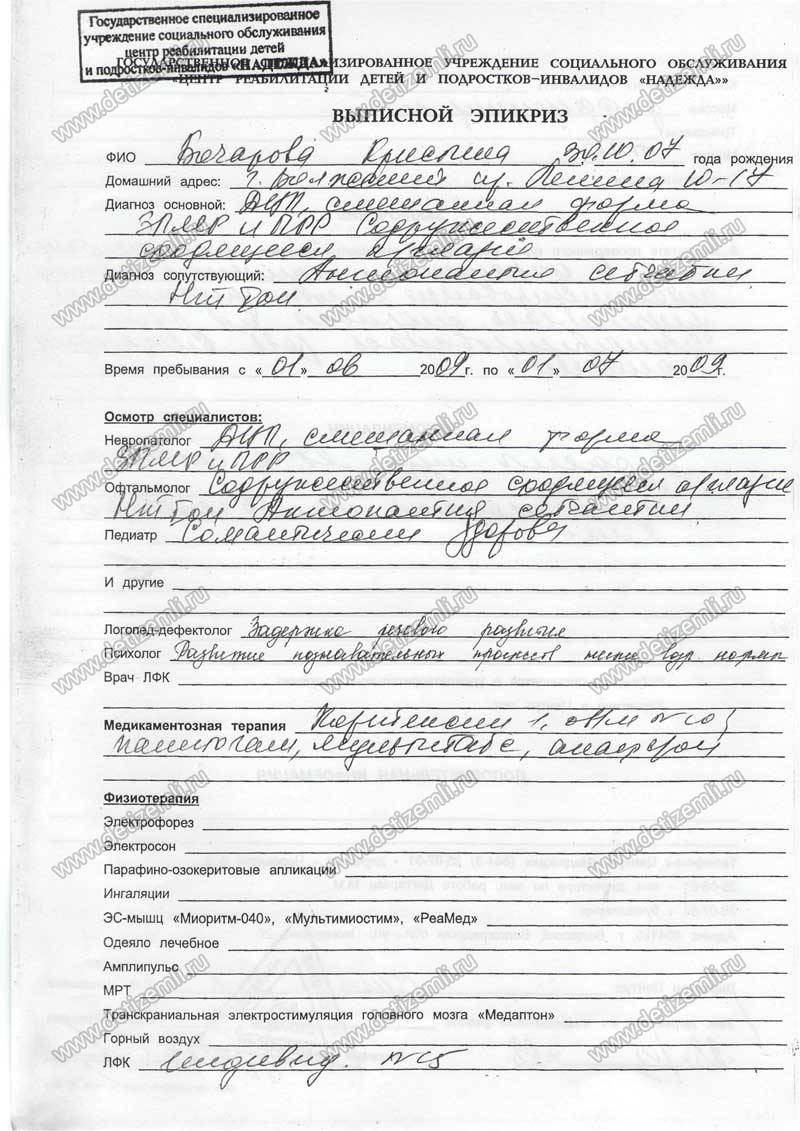 Государственное специализированное
учреждение социального обслуживания
центр реабилитации детей
и подростков-инвалидов «НАДЕЖДА»
ГОСУДАРСТВЕННОЕ СПЕЦИАЛИЗИРОВАННОЕ УЧРЕЖДЕНИЕ СОЦИАЛЬНОГО ОБСЛУЖИВАНИЯ
«ЦЕНТР РЕАБИЛИТАЦИИ ДЕТЕЙ И ПОДРОСТКОВ-ИНВАЛИДОВ «НАДЕЖДА»»
ВЫПИСНОЙ ЭПИКРИЗ
ФИО Бочарова Кристина 30.10.07 года рождения
Домашний адрес: г. Волжский ул. Ленина 10-17
Диагноз основной: ДЦП, смешанная форма
ЗПМР и ПРР Содружественное
сходящееся косоглазие
Диагноз сопутствующий: Ангиопатия сетчатки
Нистагм
Время пребывания с «01» 06 2009г. по «01» 07 2009г.
Осмотр специалистов:
Невропатолог ДЦП, смешанная форма
ЗПМР и ПРР
Офтальмолог Содружественное сходящееся косоглазие
Нистагм Ангиопатия сетчатки
Педиатр Соматически здорова
И другие
Логопед-дефектолог Задержка речевого развития
Психолог Развитие познавательных процессов ниже возр нормы
Врач ЛФК
Медикаментозная терапия Кортексин 1,0мл N10;
пантогам, мультитабс,
Физиотерапия
Электрофорез
Электросон
Парафино-озокеритовые аппликации
Ингаляции
ЭС-мышц «Миоритм-040», «Мультимиостим», «РеаМед»
Одеяло лечебное
Амплипульс
МРТ
Транскраниальная электростимуляция головного мозга «Медаптон»
Горный воздух
ЛФК индивид. N15
www.detizemli.ru